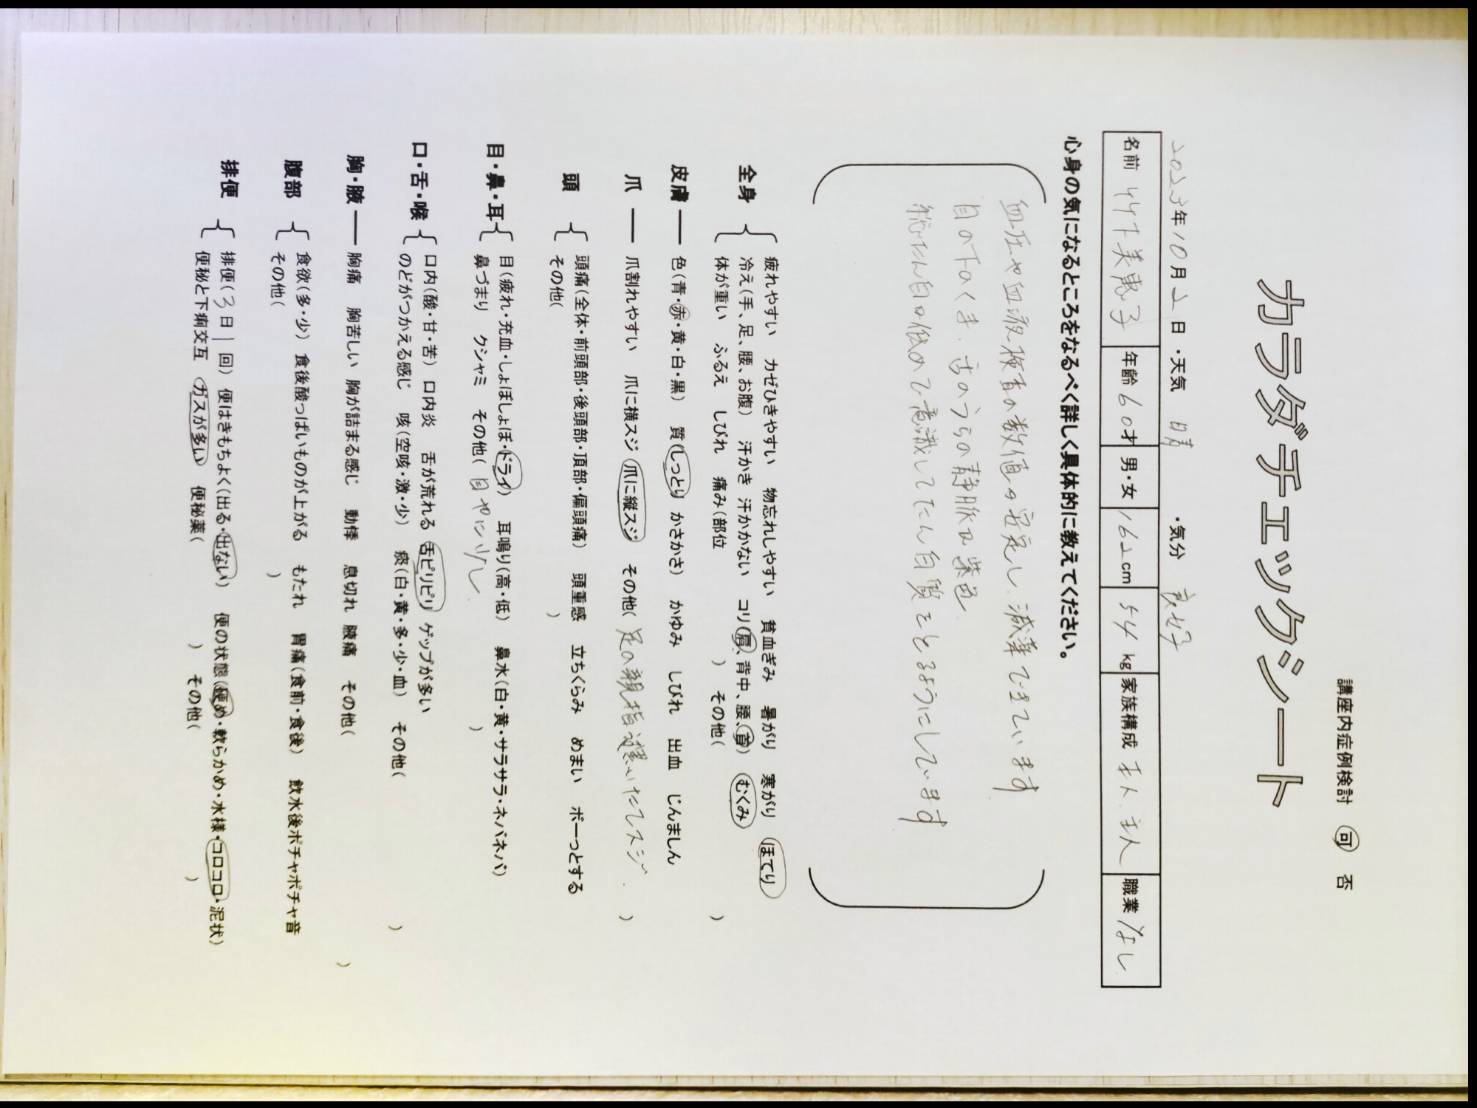 講座内症例検討 可 否
カラダチェックシート
2023年10月2日・天気 晴 ・気分 良好
名前 竹下美恵子 年齢 60才 男・女 162cm 54kg 家族構成 本人、主人 職業 なし
心身の気になるところをなるべく詳しく具体的に教えてください。
血圧や血液検査の数値の安定し、減薬できています
目の下のくま、舌のうらの静脈は紫色
総たん白は低めで意識してたん白質をとるようにしています
全身 疲れやすい カゼひきやすい 物忘れしやすい 貧血ぎみ 暑がり 寒がり ほてり
冷え(手、足、腰、お腹) 汗かき 汗かかない コリ(肩、背中、腰、首) むくみ
体が重い ふるえ しびれ 痛み(部位 ) その他( )
皮膚 色(青・赤・黄・白・黒) 質(しっとり かさかさ) かゆみ しびれ 出血 じんましん
爪 爪割れやすい 爪に横スジ 爪に縦スジ その他(足の親指 濃いたてスジ. )
頭 頭痛(全体・前頭部・後頭部・頂部・偏頭痛) 頭重感 立ちくらみ めまい ボーっとする
その他( )
目・鼻・耳 目(疲れ・充血・しょぼしょぼ・ドライ) 耳鳴り(高・低) 鼻水(白・黄・サラサラ・ネバネバ)
鼻づまり クシャミ その他(目やに少し )
口・舌・喉 口内(酸・甘・苦) 口内炎 舌が荒れる 舌ピリピリ ゲップが多い
のどがつかえる感じ 咳(空咳・激・少) 痰(白・黄・多・少・血) その他( )
胸・腋 胸痛 胸苦しい 胸が詰まる感じ 動悸 息切れ 腋痛 その他( )
腹部 食欲(多・少) 食後酸っぱいものが上がる もたれ 胃痛(食前・食後) 飲水後ポチャポチャ音
その他( )
排便 排便(3日1回) 便はきもちよく(出る・出ない) 便の状態(硬め・軟らかめ・水様・コロコロ・泥状)
便秘と下痢交互 ガスが多い 便秘薬( ) その他( )